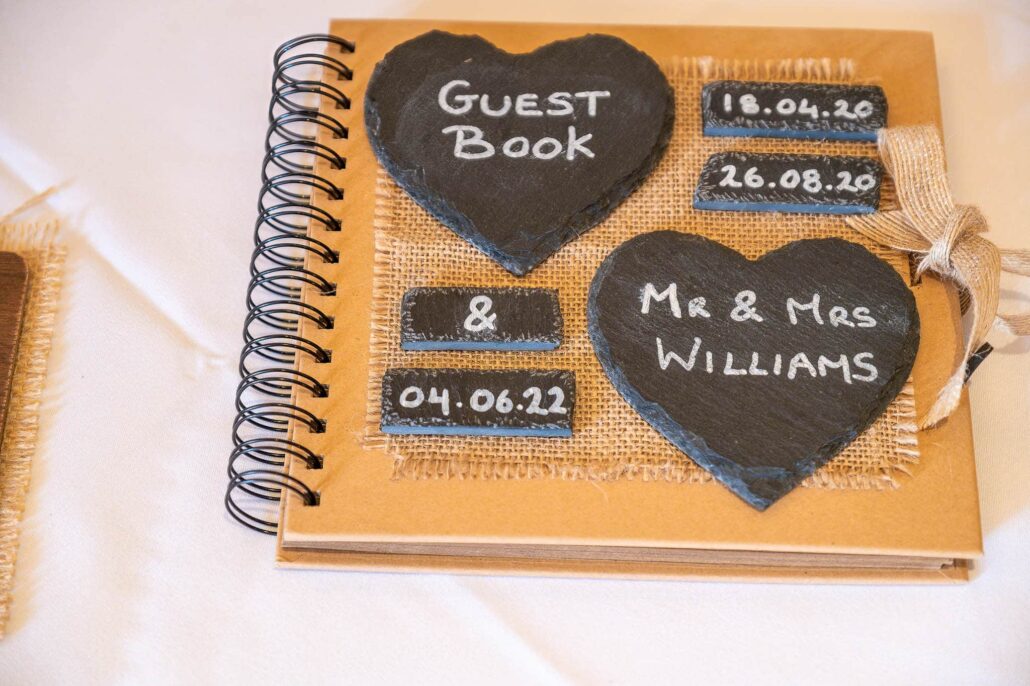 Guest
Book
18.04.20
26.08.20
&
04.06.22
Mr & Mrs
Williams